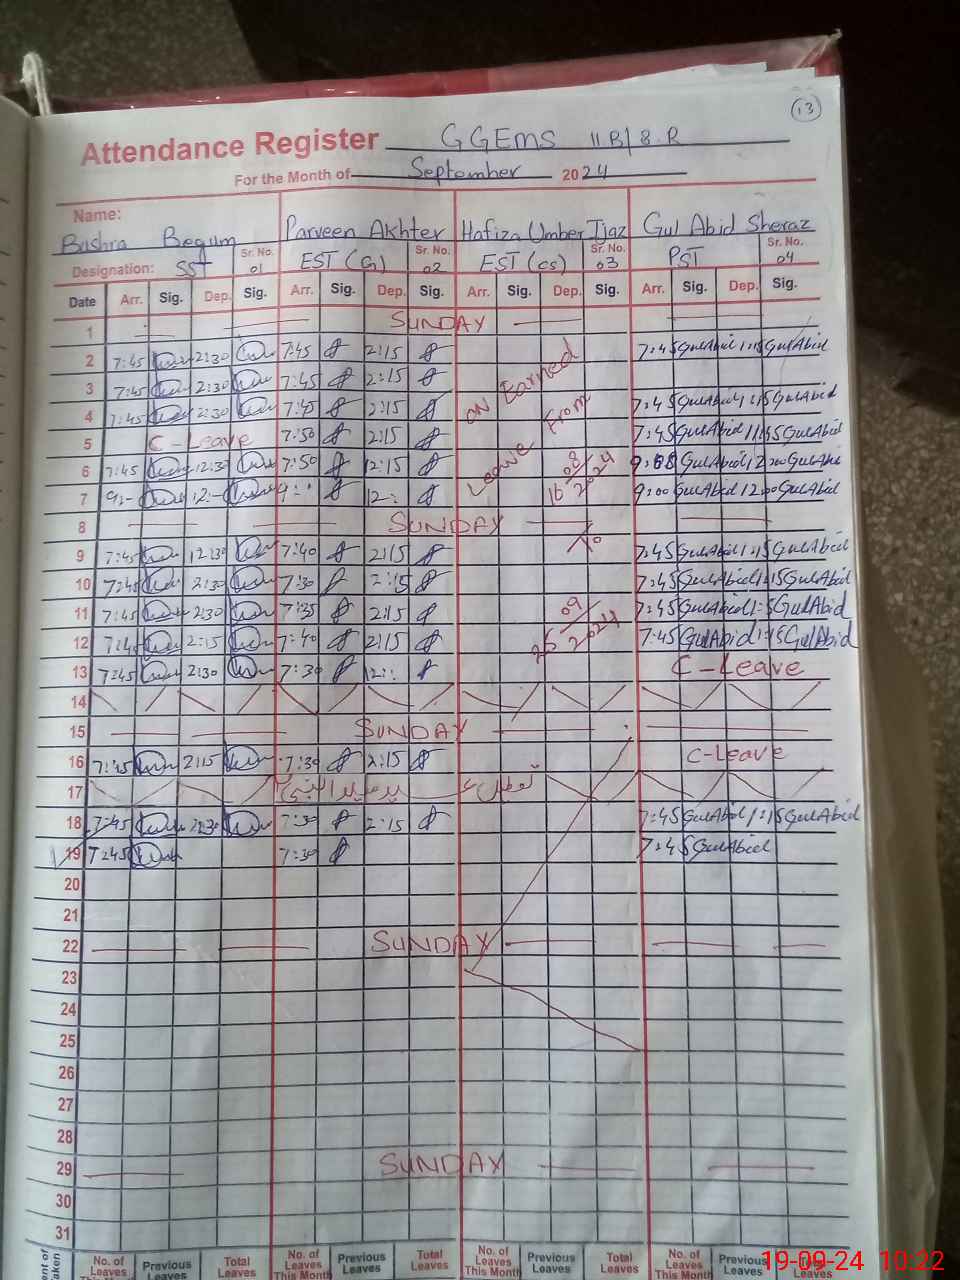 13
Attendance Register GGEMS 11B/8.R
For the Month of September 2024
Name: Bushra Begum Parveen Akhter Hafiza Umber Ijaz Gul Abid Sheraz
Designation: SST Sr. No. 01 EST (G) Sr. No. 02 EST (CS) Sr. No. 03 PST Sr. No. 04
Date Arr. Sig. Dep. Sig. Arr. Sig. Dep. Sig. Arr. Sig. Dep. Sig. Arr. Sig. Dep. Sig.
1 SUNDAY
2 7:45 2:30 7:45 2:15 7:45 GulAbid 1:15 GulAbid
3 7:45 2:30 7:45 2:15 on Earned
4 7:45 2:30 7:45 2:15 7:45 GulAbid 1:15 GulAbid
5 C-Leave 7:50 2:15 Leave From 7:45 GulAbid GulAbid
6 7:45 12:30 7:50 12:15 GulAbid 12:00 GulAbid
7 9:- 12:- 12: 16 08 2024 9:00 GulAbid 12:00 GulAbid
8 SUNDAY
9 7:45 12:30 7:40 2:15 To 7:45 GulAbid 1:15 GulAbid
10 7:45 2:30 7:30 2:15 7:45 GulAbid 1:15 GulAbid
11 7:45 2:30 7:35 2:15 7:45 GulAbid GulAbid
12 7:45 2:15 7:40 2:15 25 09 2024 7:45 GulAbid 1:15 GulAbid
13 7:45 2:30 7:30 12: C-Leave
14
15 SUNDAY
16 7:45 2:15 7:30 2:15 C-Leave
17 تعطیل عید میلاد النبی
18 7:45 2:30 7:30 2:15 7:45 GulAbid 1:15 GulAbid
19 7:45 7:30 7:45 GulAbid
20
21
22 SUNDAY
23
24
25
26
27
28
29 SUNDAY
30
31
No. of Leaves This Month Previous Leaves Total Leaves No. of Leaves This Month Previous Leaves Total Leaves No. of Leaves This Month Previous Leaves Total Leaves No. of Leaves Previous Leaves Leaves
19-09-24 10:22